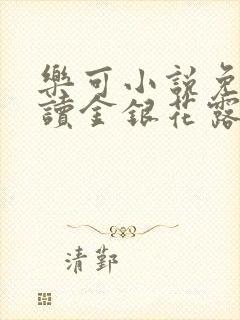 樂可小說免
讀金銀花露
清鄞